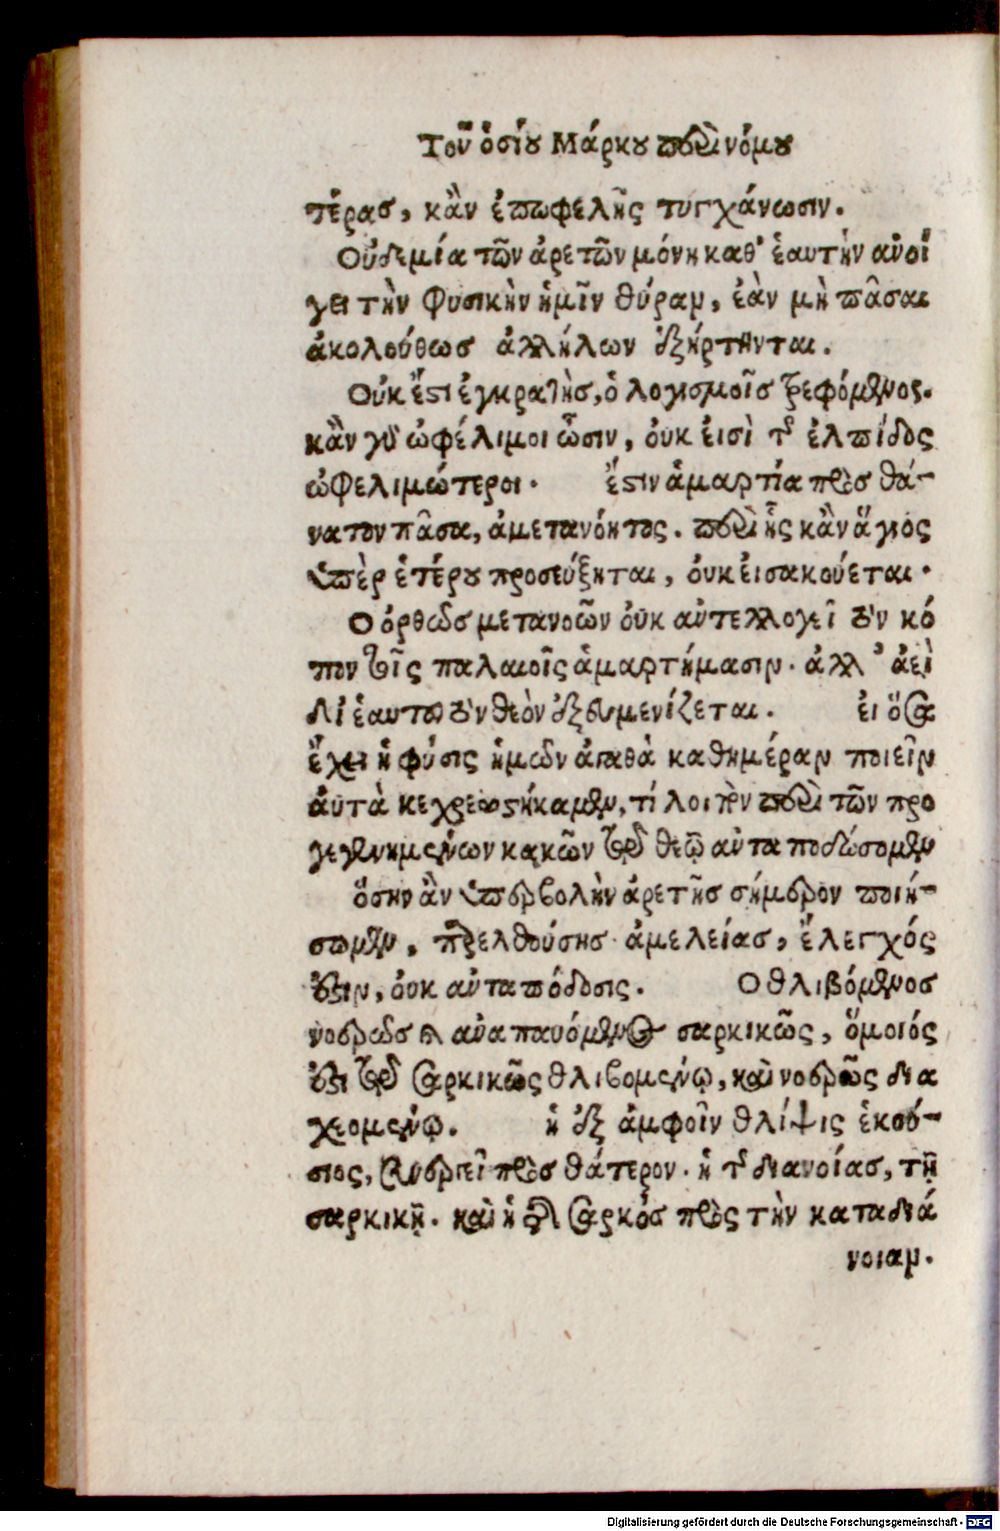 Τοῦ ὁσίου Μάρκου περὶ νόμου
τέρας, κἂν ἐπωφελῆς τυγχάνωσιν.
Οὐδεμία τῶν ἀρετῶν μόνη καθ' ἑαυτὴν ἀνοί
γει τὴν φυσικὴν ἡμῖν θύραν, ἐὰν μὴ πᾶσαι
ἀκολούθως ἀλλήλων ἐξήρτηνται.
Οὐκ ἔστι ἐγκρατὴς, ὁ λογισμοῖς τρεφόμενος.
κἂν γὰρ ὠφέλιμοι ὦσιν, οὐκ εἰσὶ τῆς ἐλπίδος
ὠφελιμώτεροι. ἔστιν ἁμαρτία πρὸς θά-
νατον πᾶσα, ἀμετανόητος. περὶ ἧς κἂν ἅγιος
ὑπὲρ ἑτέρου προσεύξηται, οὐκ εἰσακούεται.
Ο ὀρθῶς μετανοῶν οὐκ ἀντελλογεῖ τὸν κό
πον τοῖς παλαιοῖς ἁμαρτήμασιν. ἀλλ' ἀεὶ
δι ἑαυτοῦ τὸν θεὸν ἐξευμενίζεται. εἰ ὅσα
ἔχει ἡ φύσις ἡμῶν ἀγαθὰ καθημέραν ποιεῖν
αὐτὰ κεχρεωστήκαμεν, τί λοιπὸν περὶ τῶν προ
γεγενημένων κακῶν τῷ θεῷ ἀνταποδώσομεν
ὅσην ἂν ὑπερβολὴν ἀρετῆς σήμερον ποιή-
σωμεν, παρελθούσης ἀμελείας, ἔλεγχός
ἐστιν, οὐκ ἀνταπόδοσις. Ο θλιβόμενος
νοερῶς καὶ ἀναπαυόμενος σαρκικῶς, ὅμοιός
ἐστι τῷ σαρκικῶς θλιβομένῳ, καὶ νοερῶς δια
χεομένῳ. ἡ ἐξ ἀμφοῖν θλίψις ἑκού-
σιος, συνεργεῖ πρὸς θάτερον. ἡ τῆς διανοίας, τῇ
σαρκικῇ. καὶ ἡ τῆς σαρκὸς πρὸς τὴν κατα διά
νοιαν.
Digitalisierung gefördert durch die Deutsche Forschungsgemeinschaft - DFG